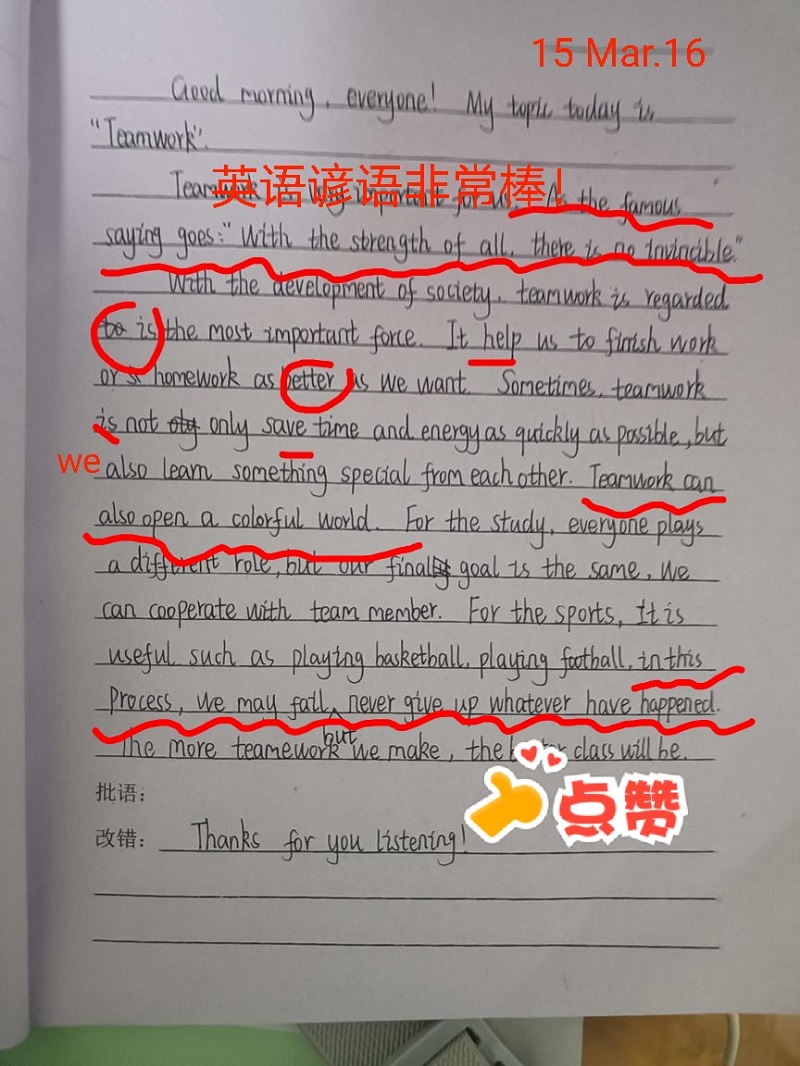 15 Mar.16
Good morning, everyone! My topic today is
"Teamwork".
英语谚语非常棒!
Teamwork is very important for us. As the famous
saying goes:"With the strength of all, there is no invincible."
With the development of society, teamwork is regarded
to is the most important force. It help us to finish work
or homework as better as we want. Sometimes, teamwork
is not only save time and energy as quickly as possible, but
we also learn something special from each other. Teamwork can
also open a colorful world. For the study, everyone plays
a different role, but our final goal is the same, we
can cooperate with team member. For the sports, It is
useful such as playing basketball, playing football, in this
Process, we may fail, never give up whatever have happened.
but
The more teamework we make, the class will be.
点赞
批语:
改错: Thanks for you listening!